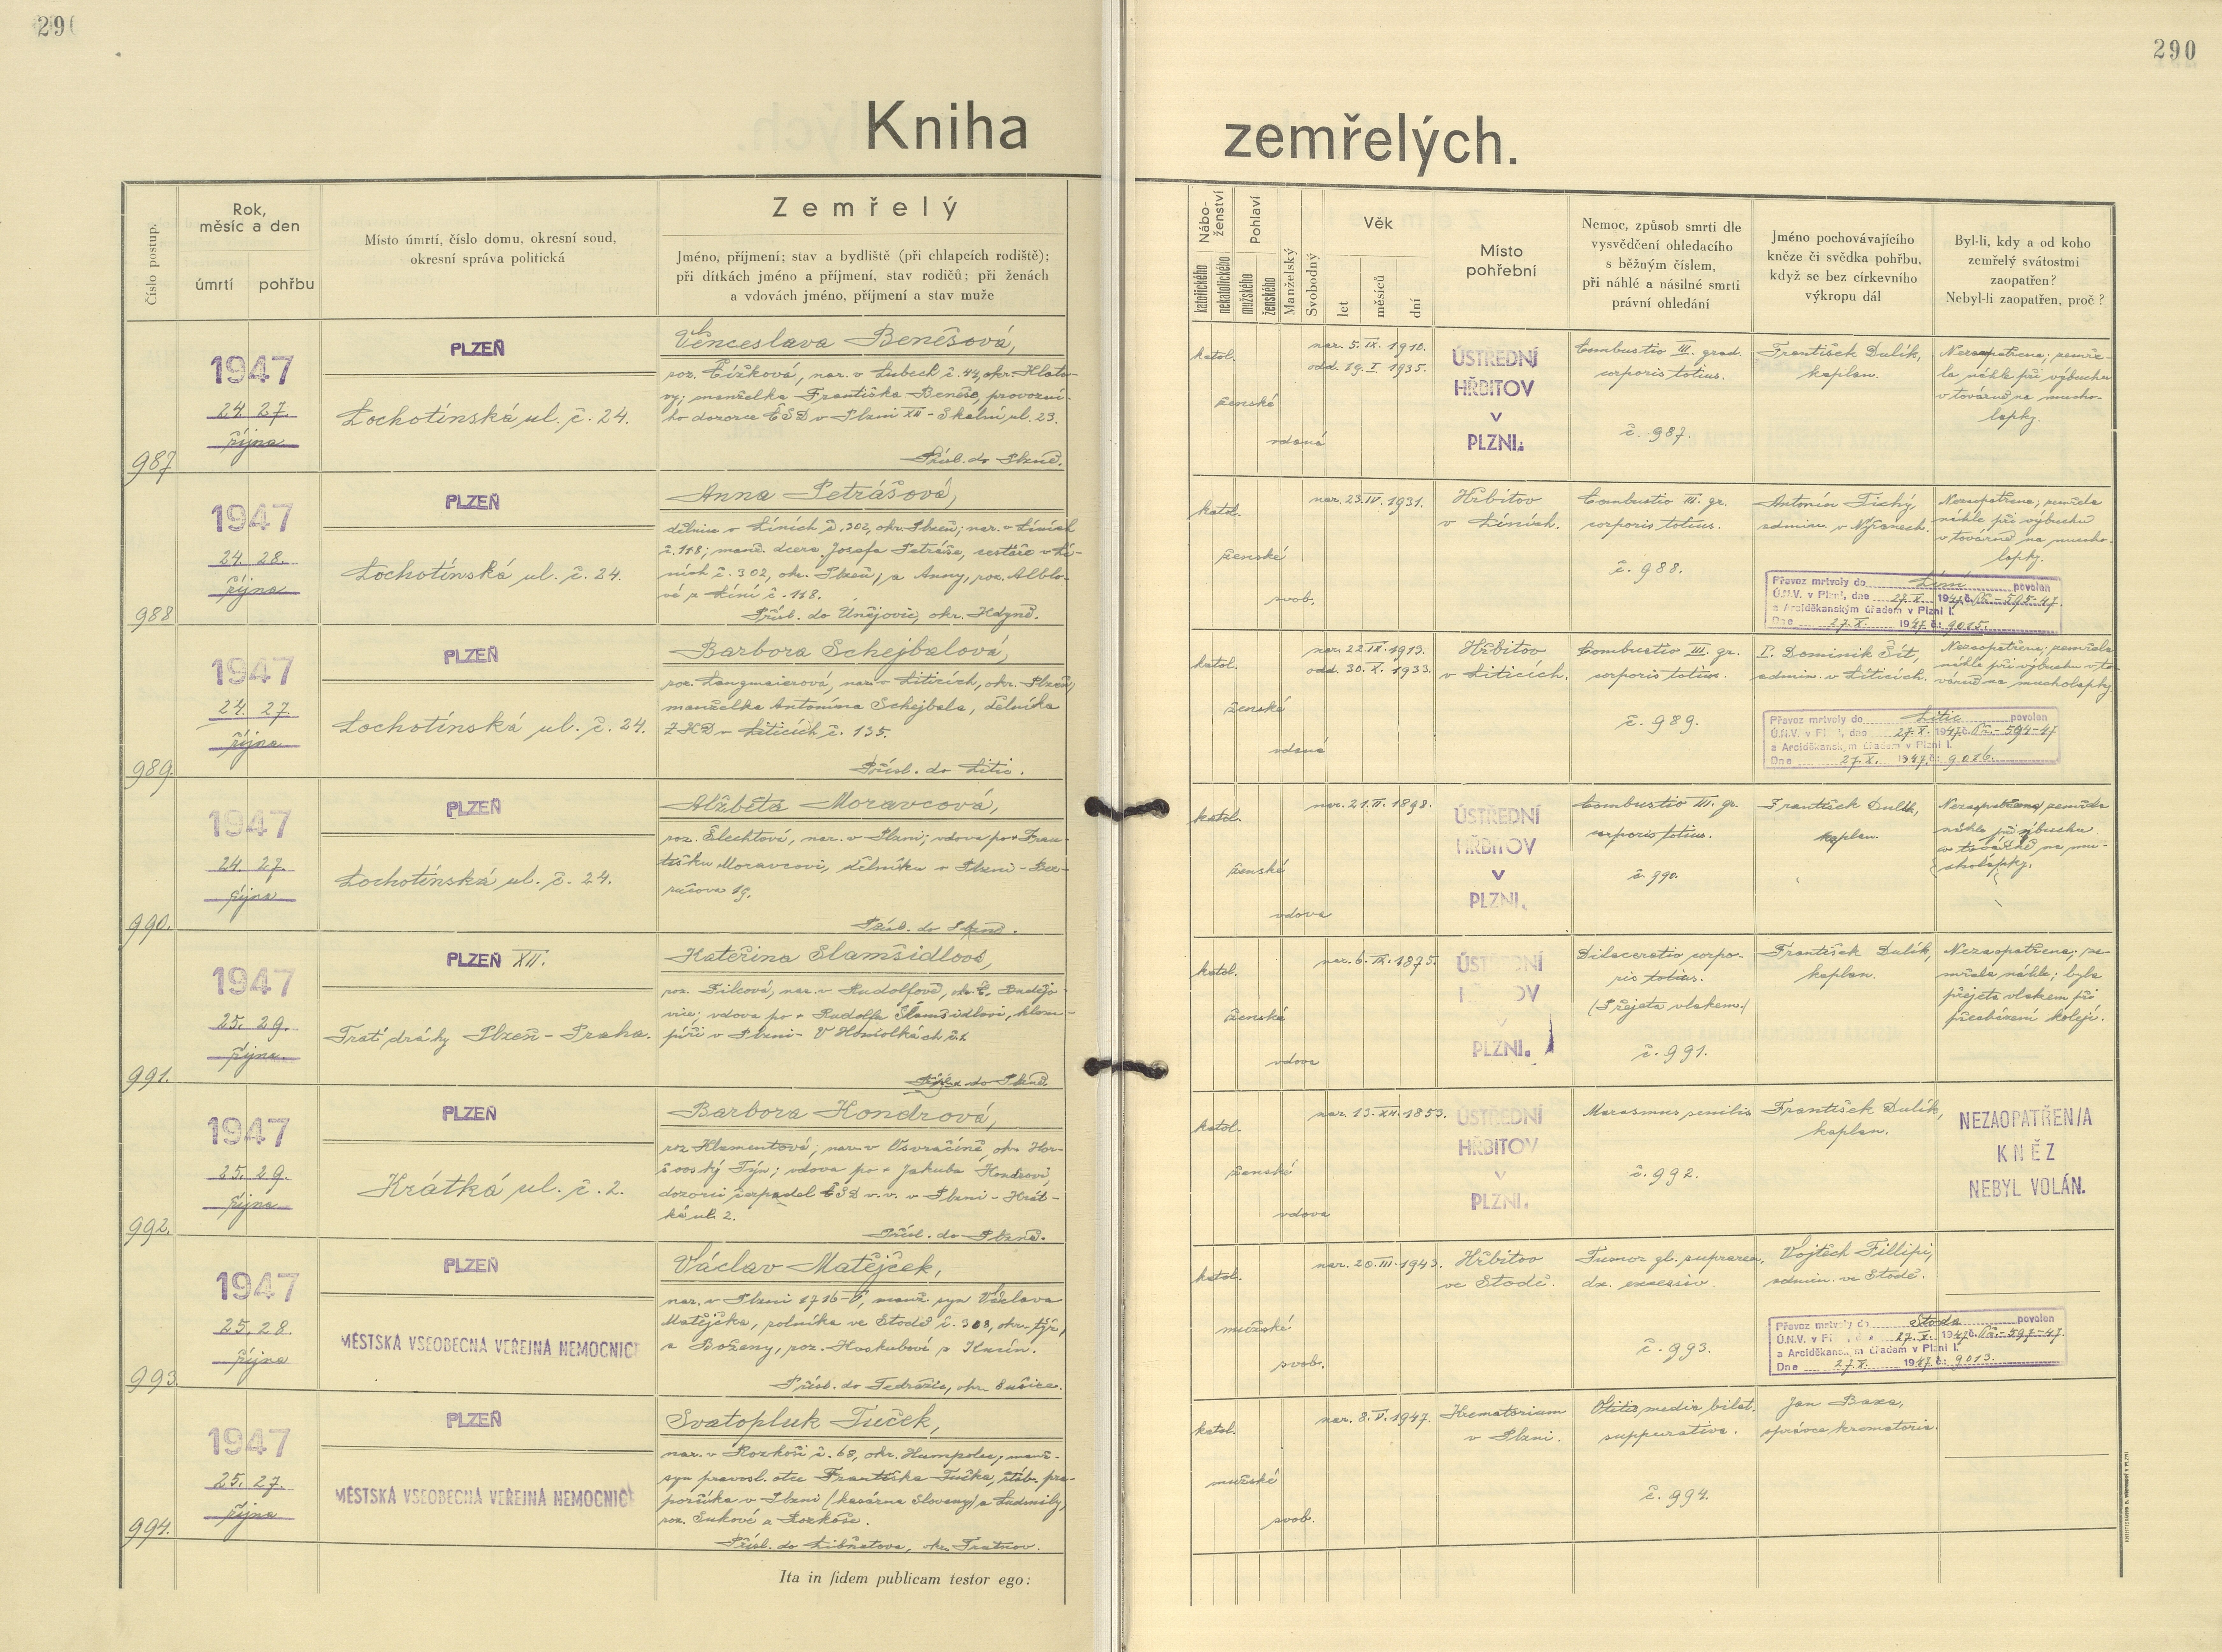 290
290
Kniha
zemřelých.
Číslo postup.
Rok,
měsíc a den
úmrtí
pohřbu
Místo úmrtí, číslo domu, okresní soud,
okresní správa politická
Zemřelý
Jméno, příjmení; stav a bydliště (při chlapcích rodiště);
při dítkách jméno a příjmení, stav rodičů; při ženách
a vdovách jméno, příjmení a stav muže
Nábo-
ženství
katolického
nekatolického
Pohlaví
mužského
ženského
Manželský
Svobodný
Věk
let
měsíců
dní
Místo
pohřební
Nemoc, způsob smrti dle
vysvědčení ohledacího
s běžným číslem,
při náhlé a násilné smrti
právní ohledání
Jméno pochovávajícího
kněze či svědka pohřbu,
když se bez církevního
výkropu dál
Byl-li, kdy a od koho
zemřelý svátostmi
zaopatřen?
Nebyl-li zaopatřen, proč?
987
1947
24. 27.
října
PLZEŇ
Lochotínská ul. č. 24.
Věnceslava Benešová,
roz. Čížková, nar. v Lubech č. 44, okr. Klato-
vy; manželka Františka Beneše, provozní-
ho dozorce ČSD v Plzni XII - Skalní ul. 23.
Přísl. do Plzně.
katol.
ženské
vdaná
nar. 5. IX. 1910.
odd. 19. I. 1935.
ÚSTŘEDNÍ
HŘBITOV
V
PLZNI.
Combustio III. grad.
corporis totius.
č. 987.
František Dulík,
kaplan.
Nezaopatřena; zemře-
la náhle při výbuchu
v továrně na mucho-
lapky.
988
1947
24. 28.
října
PLZEŇ
Lochotínská ul. č. 24.
Anna Petrášová,
dělnice v Líních č. 302, okr. Plzeň; nar. v Líních
č. 118; manž. dcera Josefa Petráše, cestáře v Lí-
ních č. 302, okr. Plzeň; a Anny, roz. Alblo-
vé z Líní č. 118.
Přísl. do Únějovic, okr. Kdyně.
katol.
ženské
svob.
nar. 23. IV. 1931.
Hřbitov
v Líních.
Combustio III. gr.
corporis totius.
č. 988.
Antonín Tichý
admin. v Nýřanech.
Nezaopatřena; zemřela
náhle při výbuchu
v továrně na mucho-
lapky.
Převoz mrtvoly do Líní povolen
Ú.N.V. v Plzni, dne 27. X. 1947 č. 595-47.
a Arciděkanským úřadem v Plzni I.
Dne 27. X. 1947 č: 9015.
989.
1947
24. 27.
října
PLZEŇ
Lochotínská ul. č. 24.
Barbora Schejbalová,
roz. Langmaierová, nar. v Liticích, okr. Plzeň;
manželka Antonína Schejbala, dělníka
v Liticích č. 135.
Přísl. do Litic.
katol.
ženské
vdaná
nar. 22. IX. 1913.
odd. 30. X. 1933.
Hřbitov
v Liticích.
Combustio III. gr.
corporis totius.
č. 989.
P. Dominik Šít,
admin. v Liticích.
Nezaopatřena; zemřela
náhle při výbuchu v to-
várně na mucholapky.
Převoz mrtvoly do Litic povolen
Ú.N.V. v Plzni, dne 27. X. 1947 č. 594-47
a Arciděkanským úřadem v Plzni I.
Dne 27. X. 1947 č: 9016.
990.
1947
24. 27.
října
PLZEŇ
Lochotínská ul. č. 24.
Alžběta Moravcová,
roz. Šlechtová, nar. v Plzni; vdova po + Fran-
tišku Moravcovi, dělníku v Plzni - Bez-
ručova 19.
Přísl. do Plzně.
katol.
ženské
vdova
nar. 21. II. 1898.
ÚSTŘEDNÍ
HŘBITOV
V
PLZNI.
Combustio III. gr.
corporis totius.
č. 990.
František Dulík,
kaplan.
Nezaopatřena; zemřela
náhle při výbuchu
v továrně na mu-
cholapky.
991.
1947
25. 29.
října
PLZEŇ XII.
Trať dráhy Plzeň - Praha.
Kateřina Slamšidlová,
roz. Filcová, nar. v Rudolfově, okr. Č. Budějo-
vice; vdova po + Rudolfu Slamšidlovi, klem-
píři v Plzni - V Homolkách č. 1.
Přísl. do Plzně.
katol.
ženské
vdova
nar. 6. IX. 1875.
ÚSTŘEDNÍ
HŘBITOV
V
PLZNI.
Dilaceratio corpo-
ris totius.
(Přejeta vlakem.)
č. 991.
František Dulík,
kaplan.
Nezaopatřena; ze-
mřela náhle; byla
přejeta vlakem při
přecházení kolejí.
992.
1947
25. 29.
října
PLZEŇ
Krátká ul. č. 2.
Barbora Kondrová,
roz. Klementová, nar. v Osvračíně, okr. Hor-
šovský Týn; vdova po + Jakubu Kondrovi,
dozorci čerpadel ČSD v. v. v Plzni - Krát-
ká ul. 2.
Přísl. do Plzně.
katol.
ženské
vdova
nar. 13. XII. 1853.
ÚSTŘEDNÍ
HŘBITOV
V
PLZNI.
Marasmus senilis
č. 992.
František Dulík,
kaplan.
NEZAOPATŘEN/A
KNĚZ
NEBYL VOLÁN.
993.
1947
25. 28.
října
PLZEŇ
MĚSTSKÁ VŠEOBECNÁ VEŘEJNÁ NEMOCNICE
Václav Matějček,
nar. v Plzni 1716-V, manž. syn Václava
Matějčka, rolníka ve Stodě č. 308, okr. týž,
a Boženy, roz.
Přísl. do Tedražic, okr. Sušice.
katol.
mužské
svob.
nar. 20. III. 1943.
Hřbitov
ve Stodě.
Tumor gl. suprarea.
dx. excessiv.
č. 993.
Vojtěch Fillipi,
admin. ve Stodě.
Převoz mrtvoly do Stoda povolen
Ú.N.V. v Plzni, dne 27. X. 1947 č. 597-47.
a Arciděkanským úřadem v Plzni I.
Dne 27. X. 1947 č: 9013.
994.
1947
25. 27.
října
PLZEŇ
MĚSTSKÁ VŠEOBECNÁ VEŘEJNÁ NEMOCNICE
Svatopluk Tuček,
nar. v Rozkoši č. 68, okr. Humpolec, manž.
syn pravosl. otce Františka Tučka, štáb. pra-
porčíka v Plzni (kasárna Slovany) a Ludmily,
roz. Sukové z Rozkoše.
Přísl. do Libňatova, okr. Trutnov.
katol.
mužské
svob.
nar. 8. V. 1947.
Krematorium
v Plzni.
Otitis media bilat.
suppurativa.
č. 994.
Jan Baxa,
správce krematoria.
Ita in fidem publicam testor ego: